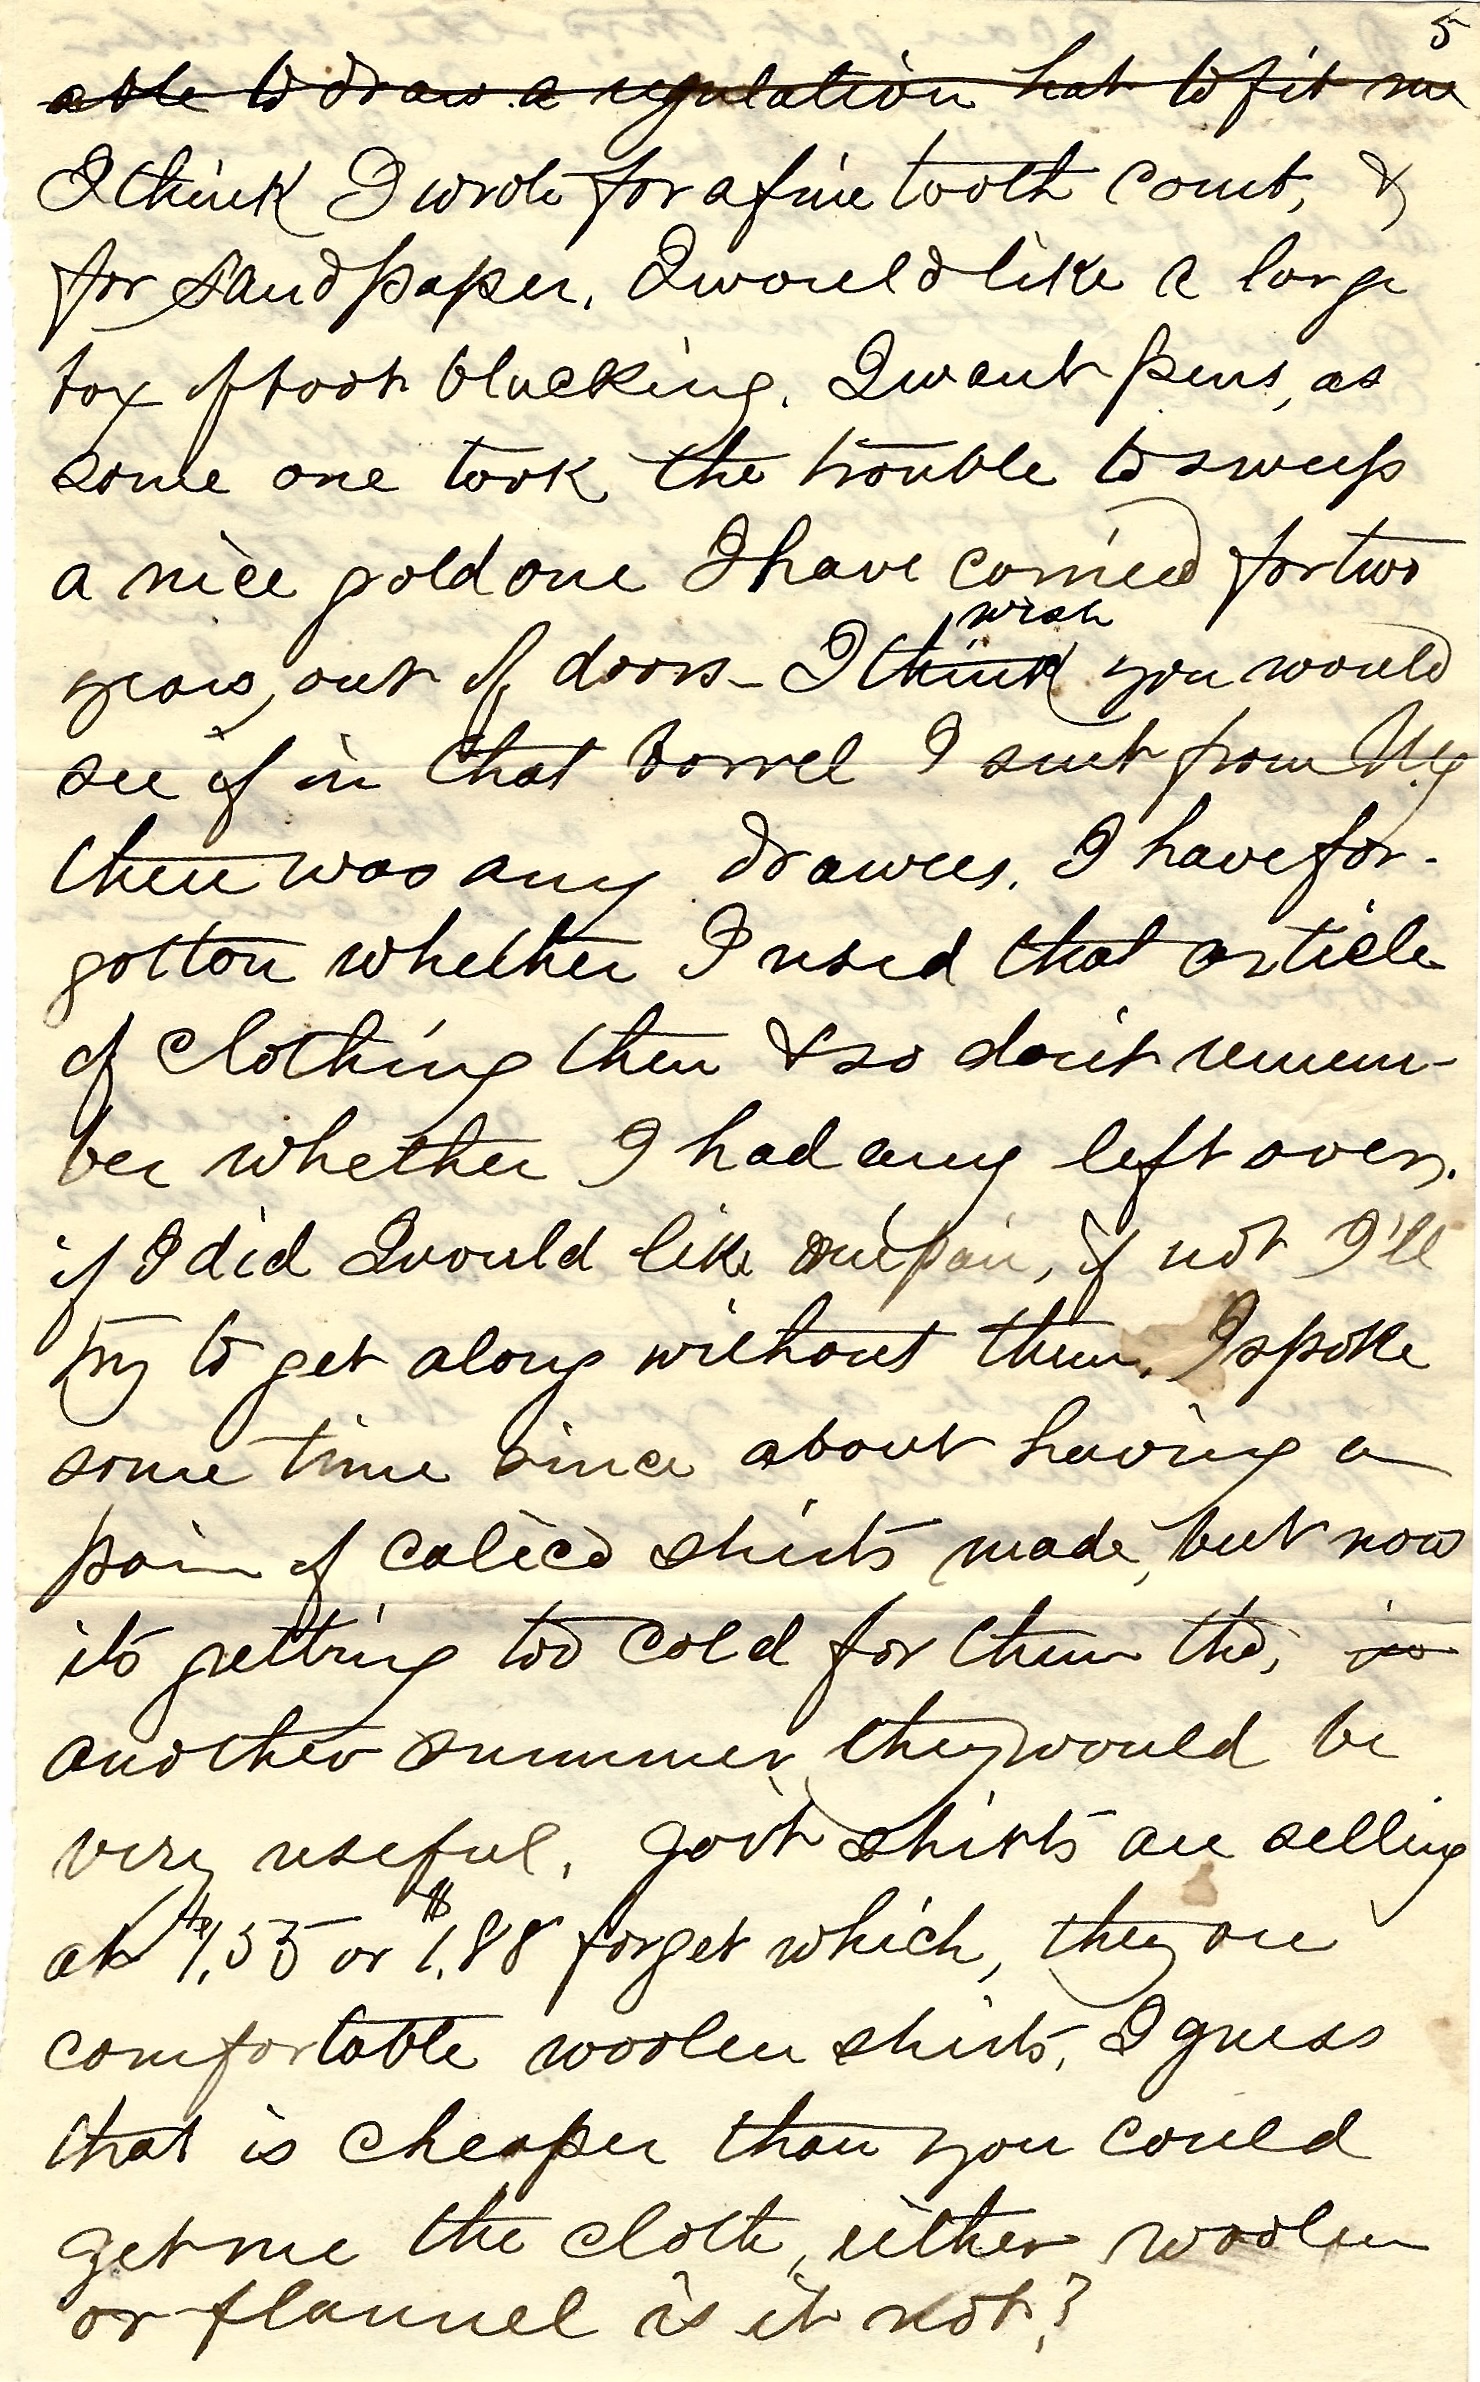 5
able to draw a regulation hat to fit me
I think I wrote for a fine tooth comb, &
for sandpaper. I would like a large
box of boot blacking. I want pens, as
some one took the trouble to sweep
a nice gold one I have carried for two
wish
years, out of doors - I think you would
see if in that barrel I sent from N.Y
there was any drawers. I have for-
gotton whether I used that article
of clothing then & so don't remem-
ber whether I had any left over.
if I did I would like one pair, if not I'll
try to get along without them. I spoke
some time since about having a
pair of calico shirts made, but now
its getting too cold for them tho, in
another summer they would be
very useful. Gov't shirts are selling
at $1.53 or $1.88 forget which, they are
comfortable woolen shirts, I guess
that is cheaper than you could
get me the cloth, either woolen
or flannel is it not?